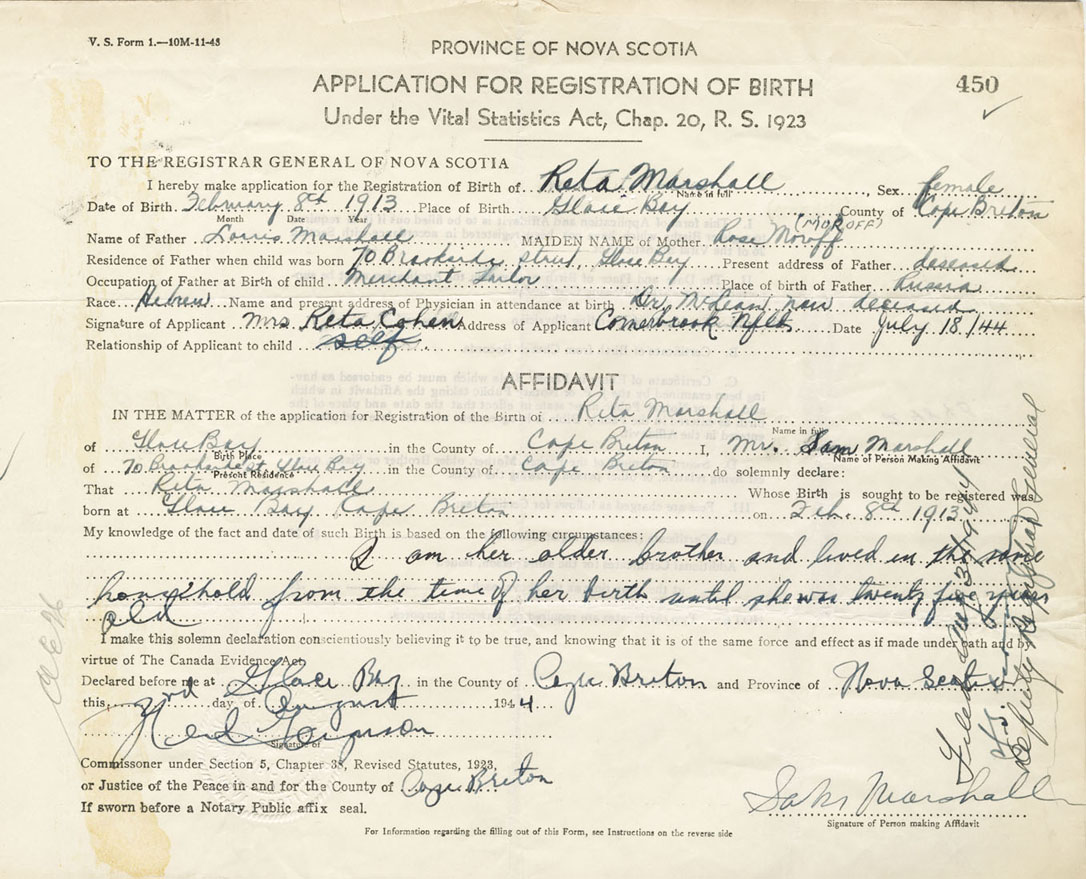 V. S. Form 1.—10M-11-43
PROVINCE OF NOVA SCOTIA
APPLICATION FOR REGISTRATION OF BIRTH
450
Under the Vital Statistics Act, Chap. 20, R. S. 1923
TO THE REGISTRAR GENERAL OF NOVA SCOTIA
I hereby make application for the Registration of Birth of Reta Marshall Sex female
Name in full
Date of Birth February 8th 1913 Place of Birth Glace Bay County of Cape Breton
Month Date Year
(MOROFF)
Name of Father Louis Marshall MAIDEN NAME of Mother Rose Moroff
Residence of Father when child was born 70 Brookside street, Glace Bay Present address of Father deceased
Occupation of Father at Birth of child Merchant Tailor Place of birth of Father Russia
Race Hebrew Name and present address of Physician in attendance at birth Dr. McLean now deceased
Signature of Applicant Mrs. Reta Cohen Address of Applicant Cornerbrook Nfld Date July 18/44
Relationship of Applicant to child self
AFFIDAVIT
IN THE MATTER of the application for Registration of the Birth of Rita Marshall
Name in full
of Glace Bay in the County of Cape Breton I, Mr. Sam Marshall
Birth Place Name of Person Making Affidavit
of 70 Brookside St, Glace Bay in the County of Cape Breton do solemnly declare:
Present Residence
That Rita Marshall Whose Birth is sought to be registered was
born at Glace Bay Cape Breton on Feb. 8th 1913
My knowledge of the fact and date of such Birth is based on the following circumstances:
I am her older brother and lived in the same
household from the time of her birth until she was twenty five years
old
I make this solemn declaration conscientiously believing it to be true, and knowing that it is of the same force and effect as if made under oath and by
virtue of The Canada Evidence Act,
Declared before me at Glace Bay in the County of Cape Breton and Province of Nova Scotia
this 2nd day of August 1944
Signature of
Commissioner under Section 5, Chapter 38, Revised Statutes, 1923,
or Justice of the Peace in and for the County of Cape Breton
If sworn before a Notary Public affix seal.
Sam Marshall
Signature of Person making Affidavit
For Information regarding the filling out of this Form, see Instructions on the reverse side
Filed 1944
Deputy Registrar General